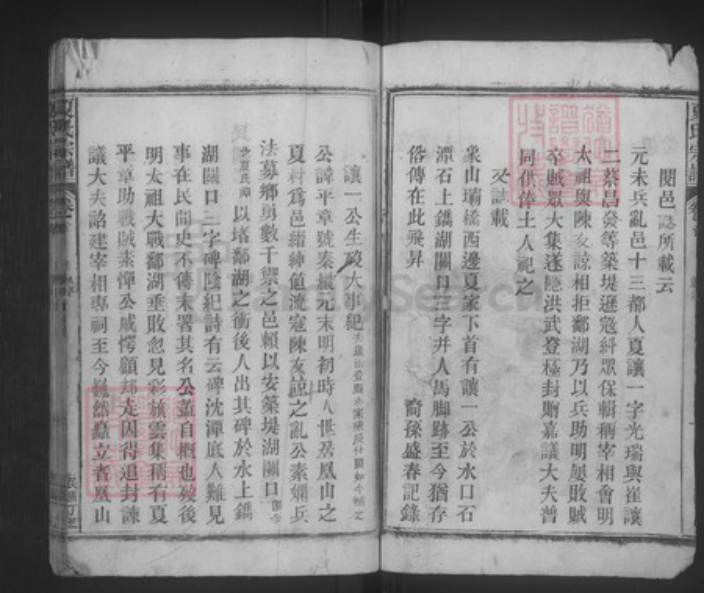 閱邑誌所載云
元末兵亂邑十三都人夏讓一字光瑞與崔讓
二蔡昌發等築堤逦寇糾眾保輯稱宰相會明
太祖與陳友諒相拒鄱湖乃以兵助明屢敗賊
卒賊眾大集遂隱洪武登極封贈嘉議大夫普
同供俸土人祀之
又誌載
象山壩橋西邊夏家下首有讓一公於水口石
潭石上鐫湖關口三字并人馬脚跡至今猶存
俗傳在此飛昇
裔孫盛春記錄
讓一公生殁大事紀
公諱平章號泰 元末明初時人世居凰山之
夏村爲邑縉紳値流寇陳友諒之亂公素嫻兵
法募鄉勇數千禦之邑賴以安築堤湖關口
以堵鄱湖之衝後人出其碑於水上鐫
湖關口三字碑陰紀詩有云碑沈潭底人難見
事在民間史不傳末署其名公蓋自概也殁後
明太祖大戰鄱湖垂敗忽見彩旗雲集稱有夏
平章助戰賊素憚公威愕顧却走因得追封諫
議大夫詔建宰相專祠至今巍然矗立者凰山